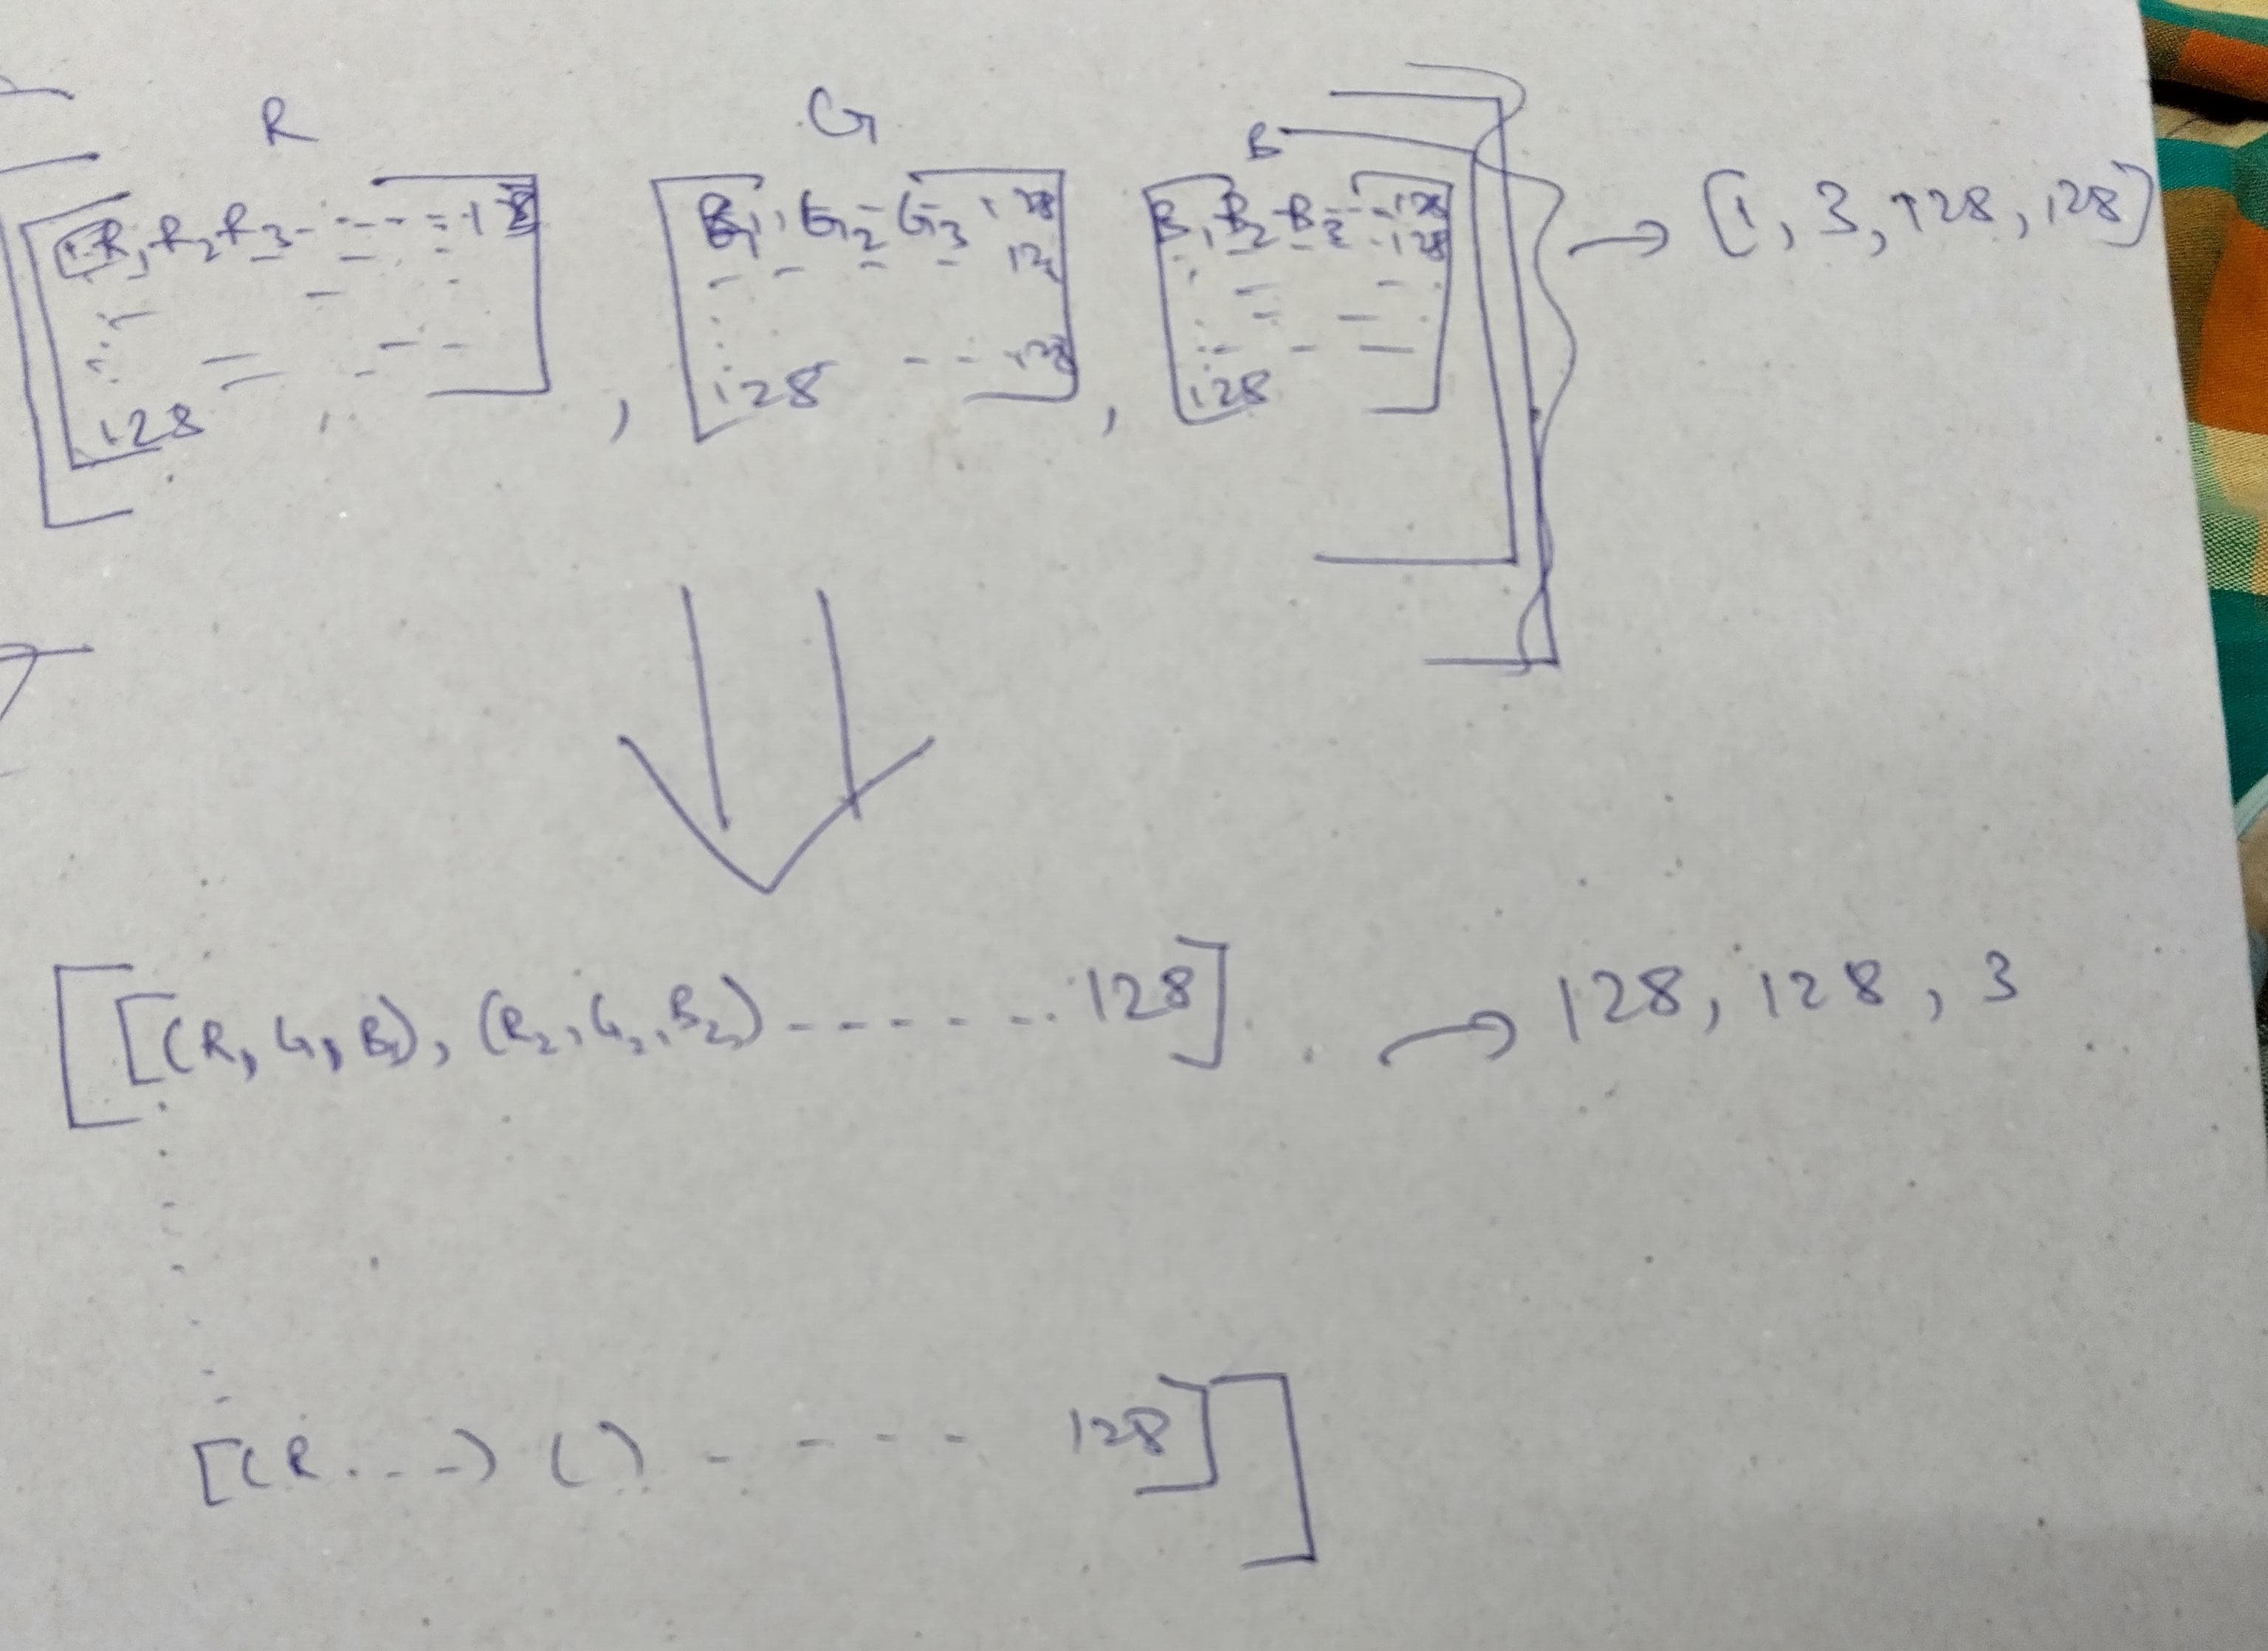 R G B
R1 R2 R3 - - - - - - 128 G1, G2 - G3 128 B1 B2 B3 - - 128 → [1, 3, 128, 128]
128
128 - - 128
128 , 128 , 128
[[(R1, G1, B1), (R2, G2, B2) - - - - - - - 128] → 128, 128, 3
[(R . . . -) ( ) - - - - 128]]